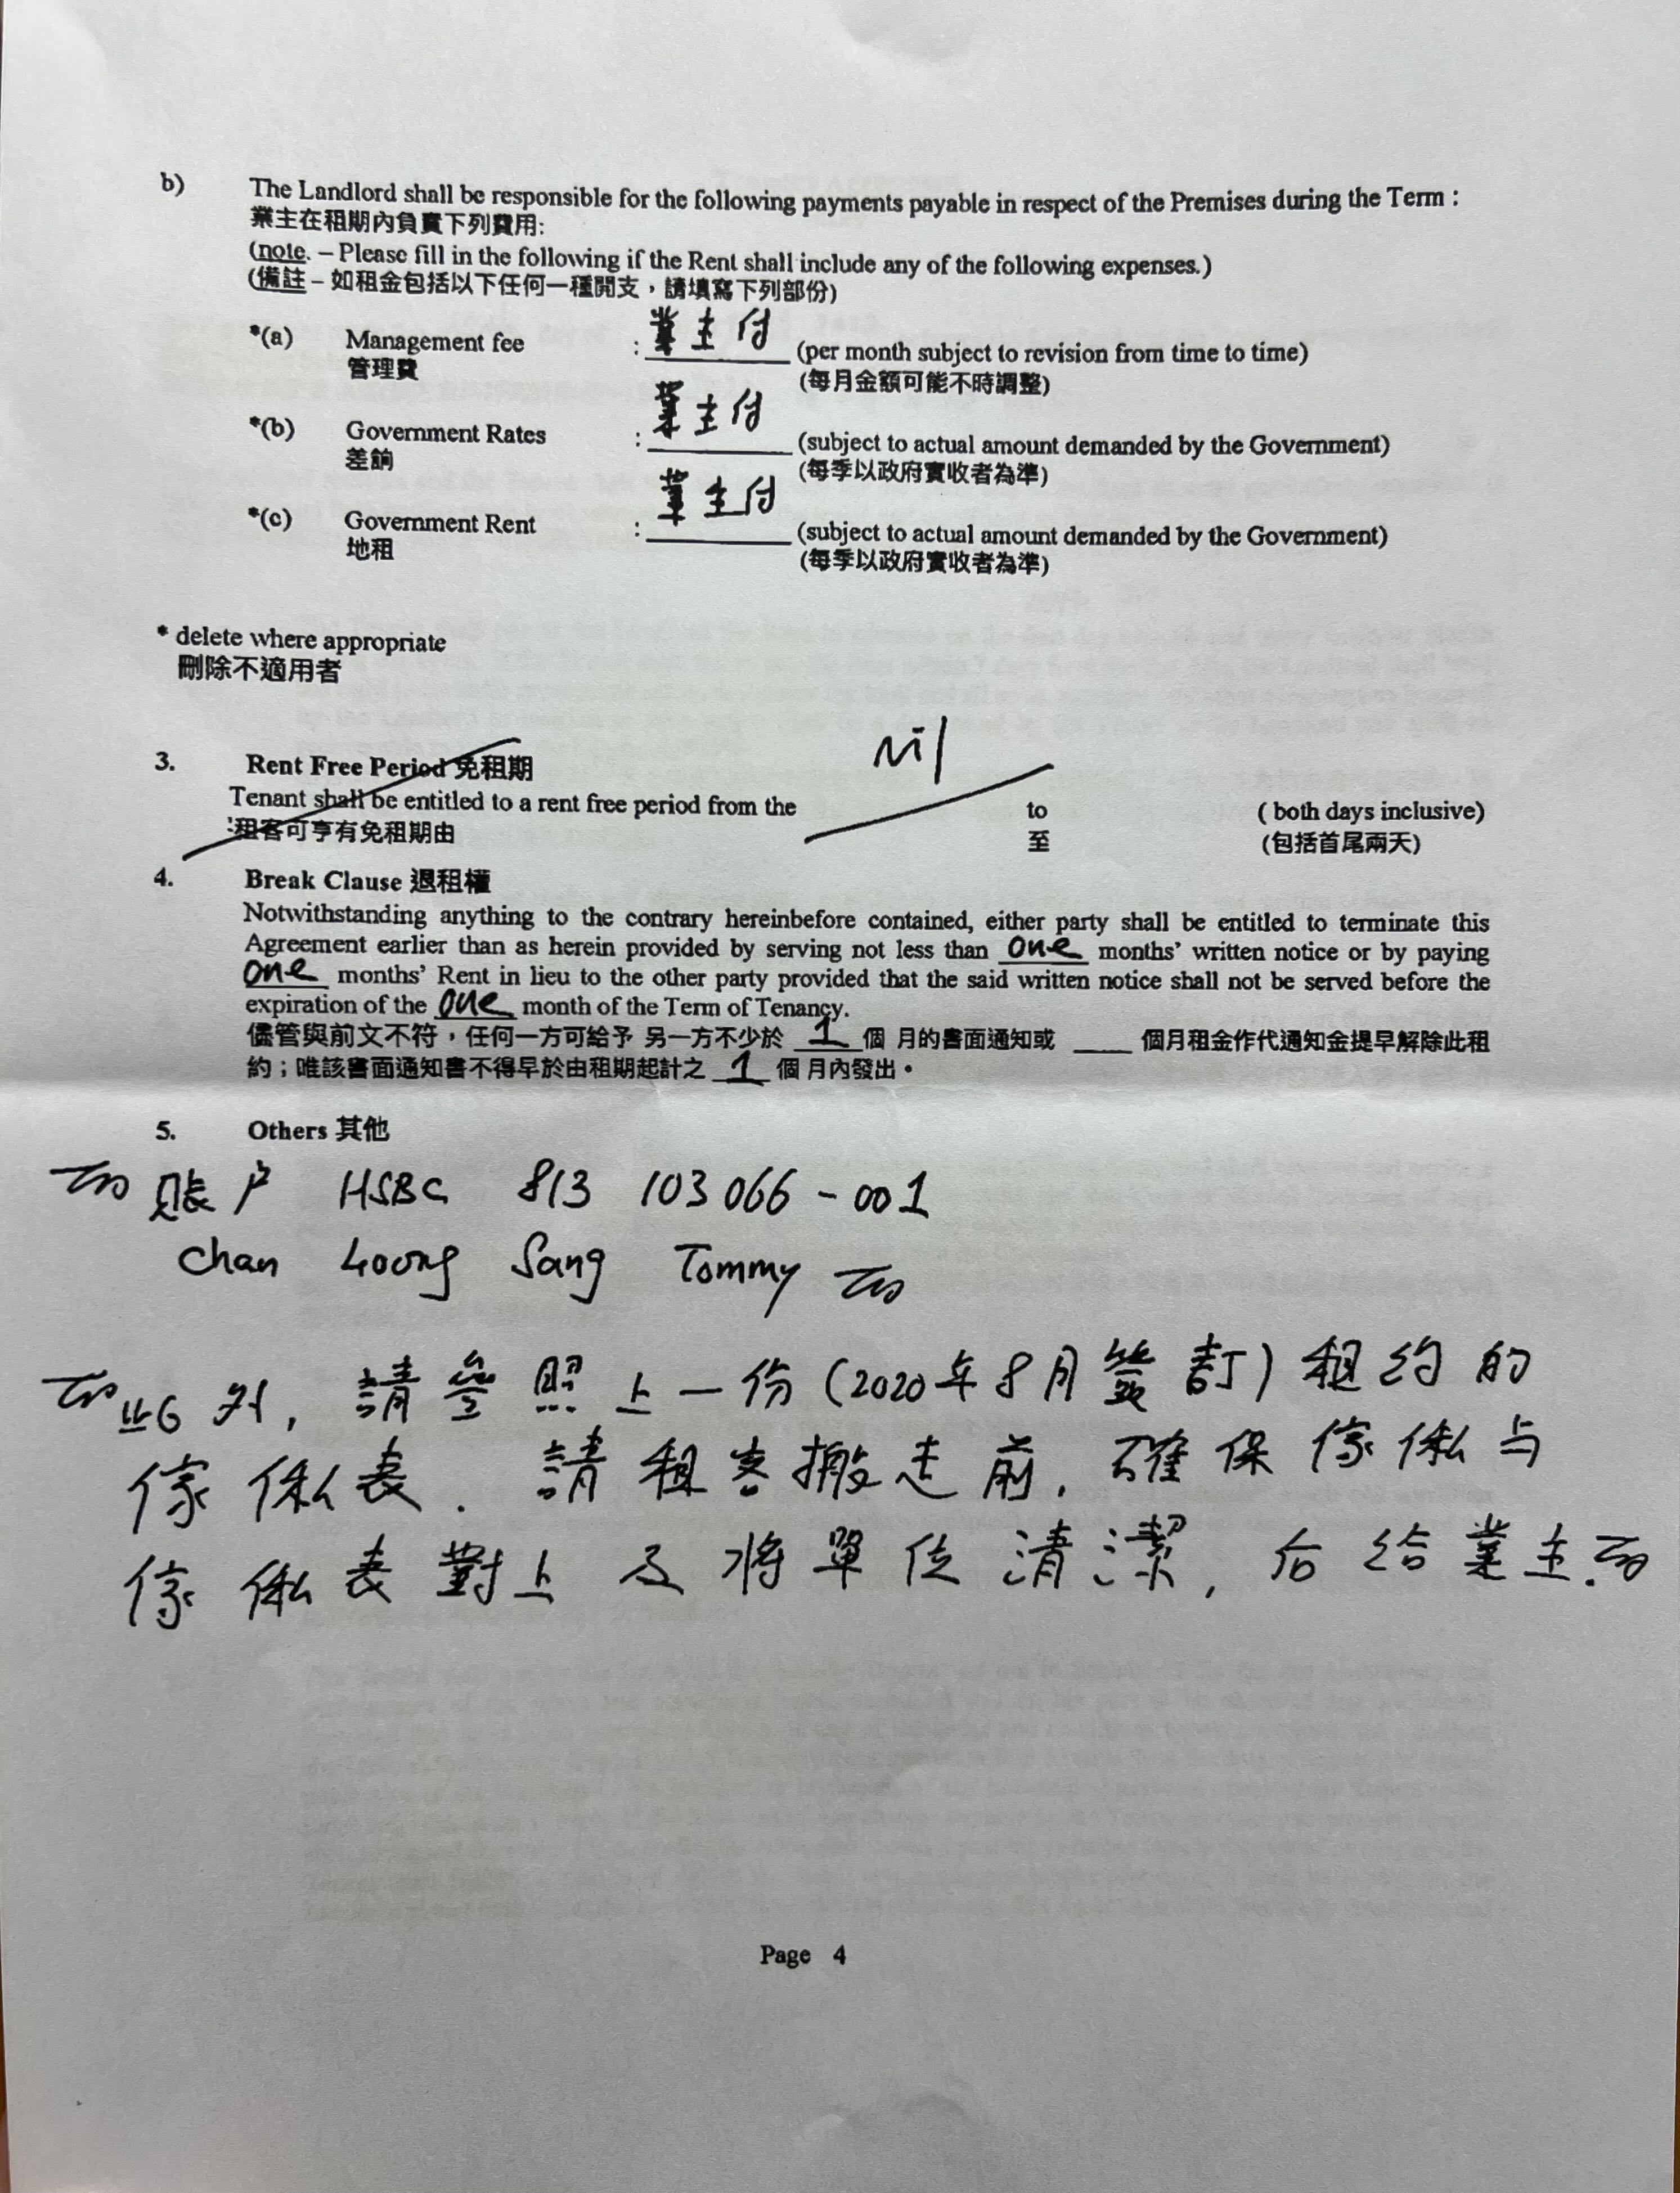 b) The Landlord shall be responsible for the following payments payable in respect of the Premises during the Term :
業主在租期內負責下列費用:
(note. – Please fill in the following if the Rent shall include any of the following expenses.)
(備註 – 如租金包括以下任何一種開支，請填寫下列部份)
*(a) Management fee : 業主付 (per month subject to revision from time to time)
管理費 (每月金額可能不時調整)
*(b) Government Rates : 業主付 (subject to actual amount demanded by the Government)
差餉 (每季以政府實收者為準)
*(c) Government Rent : 業主付 (subject to actual amount demanded by the Government)
地租 (每季以政府實收者為準)
* delete where appropriate
刪除不適用者
Nil
3. Rent Free Period 免租期
Tenant shall be entitled to a rent free period from the to ( both days inclusive)
租客可享有免租期由 至 (包括首尾兩天)
4. Break Clause 退租權
Notwithstanding anything to the contrary hereinbefore contained, either party shall be entitled to terminate this
Agreement earlier than as herein provided by serving not less than one months' written notice or by paying
one months' Rent in lieu to the other party provided that the said written notice shall not be served before the
expiration of the one month of the Term of Tenancy.
儘管與前文不符，任何一方可給予 另一方不少於 1 個 月的書面通知或 ____ 個月租金作代通知金提早解除此租
約；唯該書面通知書不得早於由租期起計之 1 個 月內發出。
5. Others 其他
账户 HSBC 813 103 066 - 001
Chan Loong Sang Tommy
外, 請參照上一份 (2020年8月簽訂) 租約的
傢俬表. 請租客搬走前, 確保傢俬与
傢俬表對上 及 將單位清潔, 后给業主.
Page 4